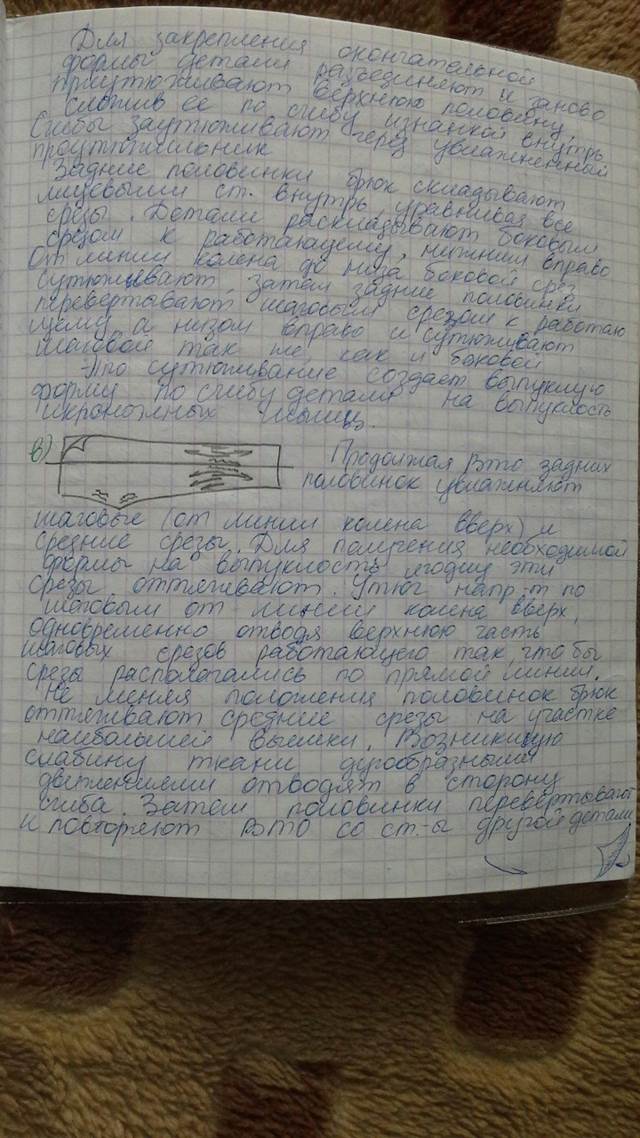 Для закрепления окончательной
формы детали разъединяют и заново
приутюживают верхнюю половину,
сложив ее по сгибу изнанкой внутрь
Сгибы заутюживают через увлажненный
проутюжильник
Задние половинки брюк складывают
лицовыми ст. внутрь, уравнивая все
срезы. Детали раскладывают боковым
срезом к работающему, нижним вправо
От линии колена до низа боковой срез
сутюживают, затем задние половинки
перевертывают шаговым срезом к работаю
щему, а низом вправо и сутюживают
шаговой так же, как и боковой
Это сутюживание создает выпуклую
форму по сгибу детали на выпуклость
икроножных мышц.
в)
Продолжая ВТО задних
половинок увлажняют
шаговые (от линии колена вверх) и
средние срезы. Для получения необходимой
формы на выпуклость ягодиц эти
срезы оттягивают. Утюг напр-т по
шаговым от линии колена вверх,
одновременно отводя верхнюю часть
шаговых срезов работающего так, что бы
срезы располагались по прямой линии.
Не меняя положения половинок брюк
оттягивают средние срезы на участке
наибольшей выемки. Возникшую
слабину ткани дугообразными
движениями отводят в сторону
сгиба. Затем половинки перевертывают
и повторяют ВТО со ст-ы другой детали